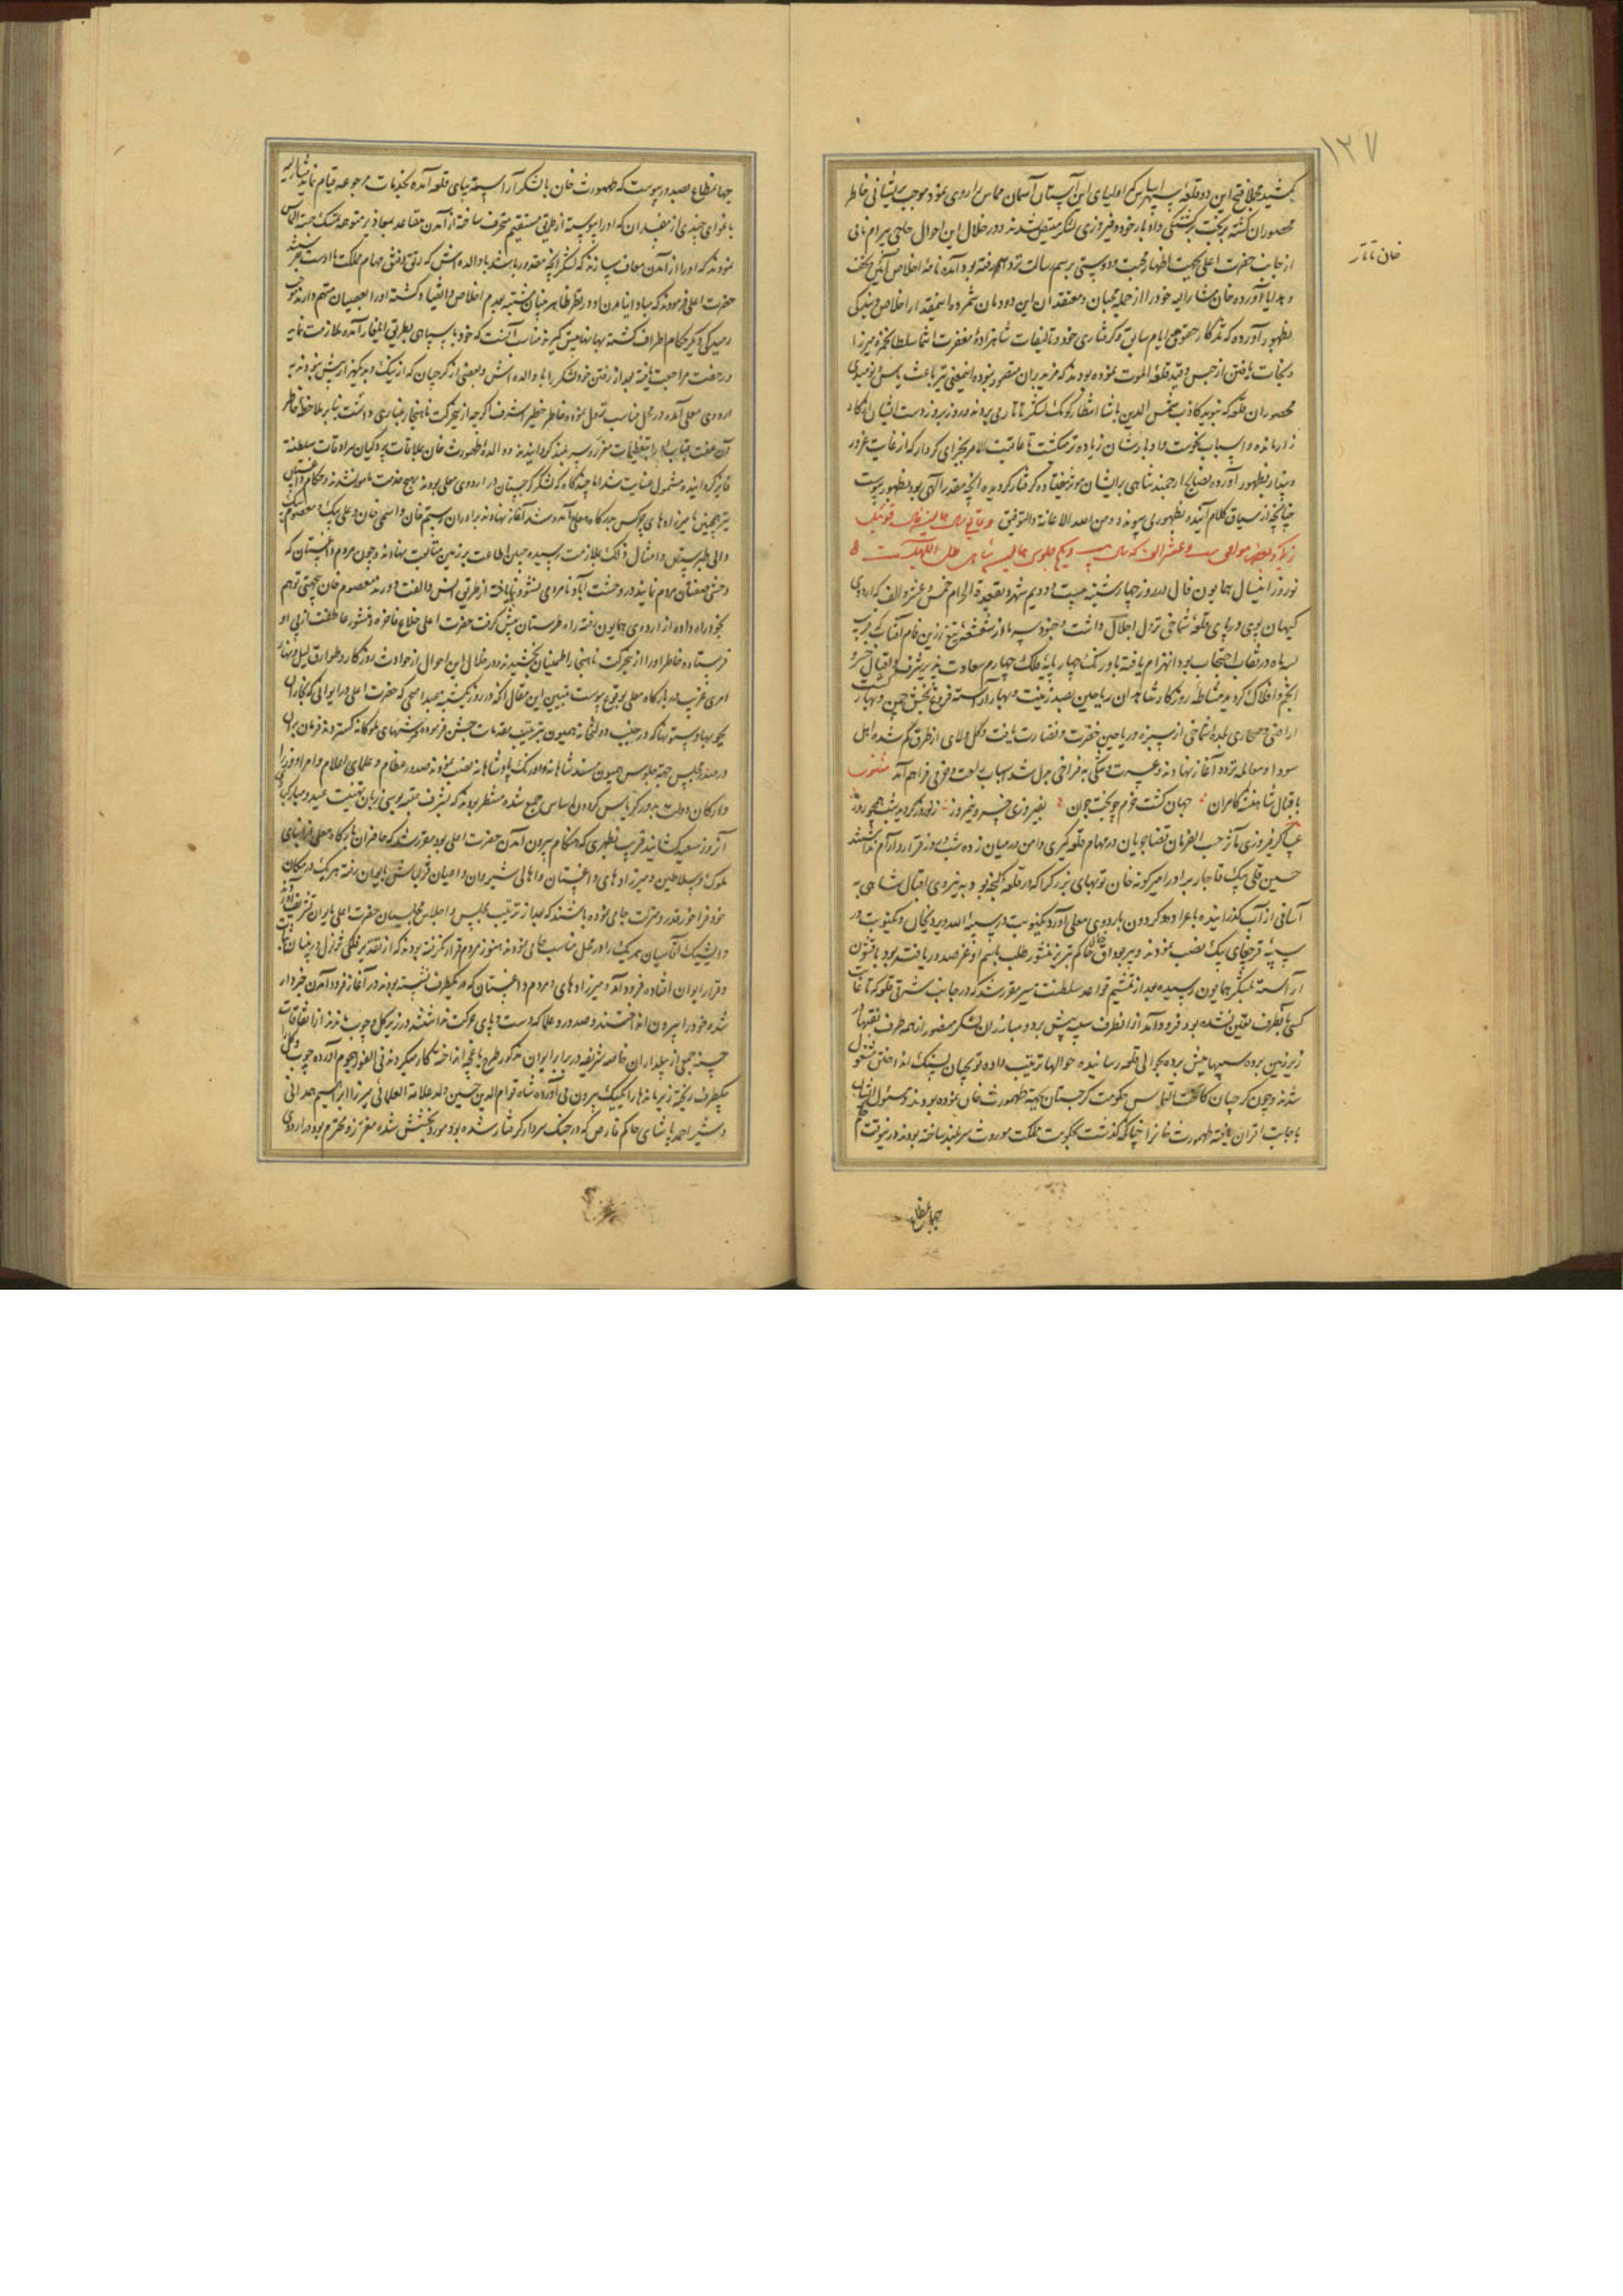 ۱۲۷
خان تاتار
کشید مجملا فتح این دو قلعه سپهر اساس که اولیای این آستان آسمان مماس را روی نمود موجب پریشانی خاطر
محصوران گشته بر بخت برگشتگی و ادبار خود و فیروزی لشکر متیقن شدند و در خلال این احوال حاجی بیرام نامی
از جانب حضرت اعلی بجهت اظهار محبت و دوستی برسم رسالت نزد او رفته بود آمده نامه اخلاص آئین و تحف
و هدایا آورده خان مشار الیه خود را از جمله محبان و معتقدان این دودمان شمرده اینمقدار اخلاص و نیکی
بظهور آورده که تذکار حقوق ایام سابق و گرفتاری خود و تالیفات شاهزاده مغفرت انتما سلطان حمزه میرزا
و نجات یافتن از حبس و قید قلعه الموت نموده بودند که مزیدی بران متصور نبود و اینمعنی نیز باعث یأس و نومیدی
محصوران قلعه که بنوید کاذب شمس الدین پاشا انتظار کومک لشکر تاتار می بردند و روز بروز دست ایشان از کار
زار مانده و اسباب نکبت و ادبارشان زیاده تر میگشت تا عاقبت الامر بجزای کردار که از غایت غرور
و پندار بظهور آورده نصایح ارجمند شاهی بر ایشان موثر نیفتاده گرفتار گردیده آنچه مقدر الهی بود بظهور پیوست
چنانچه از سیاق کلام آینده بظهور می پیوندد و من الله الاعانة والتوفیق
نوروز اینسال همایون فال در روز چهارشنبه بیست و دویم شهر ذیقعدة الحرام خمس و عشر و الف که اردوی
کیهان پوی در پای قلعه شماخی نزول اجلال داشت و جنود سپه ماه از شعشعه تیغ زرین فام آفتاب که قریب
سه ماه در نقاب احتجاب بود انهزام یافته باورنگ چهار پایه فلک چهارم سعادت پذیر شرف و اقبال خسرو
انجم و افلاک گردید مشاطه روزگار شاهدان ریاحین بصد زینت و بهار آراسته فروغ بخش چمن و بهار گشت
اراضی و صحاری بلده شماخی از سبزه و ریاحین خضرت و نضارت یافت و گل و لای از طرق گم شده اهل
سودا و معامله تردد آغاز نهادند و عسرت و تنگی به فراخی بدل شد اسباب راحت و خرمی فراهم آمد مثنوی
باقبال شاهنشه کامران جهان گشت خرم چو بخت جوان بفیروزی خسرو نیمروز ز نوروز گردید شب همچو روز
عساکر فیروزی مآثر حسب الفرمان قضا جریان در مهام قلعه گیری دامن در میان زده شب و روز قرار و آرام نداشتند
حسین قلی بیک قاجار برادر امیرگونه خان توپهای بزرگ را که از قلعه گنجه بود به نیروی اقبال شاهی به
آسانی از آب گذرانیده با عراده گردون باردوی معلی آورد یکنوبت در سیبه الله ویردیخان و یکنوبت در
سیبه قرچغای بیک نصب نمودند و پیر بوداق خان حاکم تبریز منشور طلب باسم او عز صدور یافته بود با قشون
آراسته بلشکر همایون رسیده بعد از تقسیم قواعد سلطنت سیر مقرر شد که در جانب شرقی قلعه که تا غایت
کسی بآنطرف تعین نشده بود فرود آمد از انطرف سیبه پیش برد و مبارزان لشکر منصور از همه طرف نقبها از
زیر زمین برده سیبها پیش برده بحوالی قلعه رسانیده حوالها ترتیب داده توپچیان بسنگ انداختن مشغول
شدند و چون گرجیان کاخت التماس حکومت گرجستان بجهة طهمورث خان نموده بودند و مسئول ایشان
باجابت اقتران یافته طهمورث خانرا چنانکه گذشت بحکومت مملکت موروث سربلند ساخته بودند درینوقت حکم
جهانمطاع
جهانمطاع بصدور پیوست که طهمورث خان با لشکر آراسته بپای قلعه آمده بخدمات مرجوعه قیام نماید مشار الیه
باغوای چندی از مفسدان که او را پیوسته از طریق مستقیم منحرف ساخته از آمدن متقاعد بمعاذیر متوجه تمسک جسته التماس
نمودند که او را از آمدن معاف سازند که لشکر آنچه مقدور باشد با والده اش که رتق و فتق مهام مملکت با اوست بفرستد
حضرت اعلی فرمودند که مبادا نیامدن او در نظر ظاهر بینان مشتبه بعدم اخلاص و انقیاد گشته او را بعصیان متهم دارند و موجب
رمیدگی دیگر حکام اطراف گشته بهانها پیش گیرند مناسب آنست که خود با سپاهی بطریق ایلغار آمده ملازمت نماید
و رخصت مراجعت یافته بعد از رفتن خود لشکر را با والده اش و بعضی از گرجیان که از نیک و بد یکهزار بیش نبودند به
اردوی معلی آمده در محل مناسب نزول نموده خاطر خطیر اشرف اگرچه از حرکت ناهنجار غباری داشت بنا بر ملاحظه خاطر
آن عفت مآب او را بتفقدات معزز و سربلند گردانیدند و والده طهمورث خان بملاقات پردگیان سرادقات سلطنت
فایز گردانیده مشمول عنایت شد اما چندگاه که لشکر گرجستان در اردوی معلی بودند بهیچ خدمت مامور نشدند و حکام داغستان
نیز همچنین میرزاده های چرکس بدرگاه معلی آمد و شد آغاز نهادند برادران رستم خان واسمی خان و علی بیک و معصوم خان
والی طبرسران و امثال ذلک بملازمت رسیده جبین اطاعت بر زمین متابعت نهادند و چون مردم داغستان که
وحشی صفتان مردم نمایند در وحشت آباد نامردی نشو و نما یافته از طریق انس و الفت دورند معصوم خان بیجهتی توهم
بخود راه داده از اردوی همایون رفته راه طبرستان پیش گرفت حضرت اعلی خلاع فاخره و منشور عاطفت از پی او
فرستاده خاطر او را از حرکت ناهنجار اطمینان بخشیدند و در خلال این احوال از حوادث روزگار و طوارق لیل و نهار
امری غریب در بارگاه معلی بوقوع پیوست تبیین این مقال آنکه در روز یکشنبه عید اضحی که حضرت اعلی در ایوانی که نجاران
بچوبها و ستونها که در جنب دولتخانه همیون بترتیب مقدمات جشن فرموده فرشهای ملوکانه گسترده فرمان بران
در صدر مجلس جهة جلوس همیون مسند شاهانه و اورنگ پادشاهانه نصب نمودند صدور عظام و علمای اعلام و امرا و وزرا
و ارکان دولت بر درگاه گردون اساس جمع شده منتظر بودند که بشرف عتبه بوسی زبان بتهنیت عید و مبارکی
آنروز سعید گشایند قریب بظهری که هنگام بیرون آمدن حضرت اعلی بود مقرر شد که حاضران بارگاه معلی از ابنای
ملوک و سلاطین و میرزاده های داغستان و اهالی شیروان و اعیان قزلباش بایوان رفته هر یک در مکان
خود فراخور قدر و منزلت جای نموده باشند که بعد از ترتیب مجلس و اجلاس مجلسیان حضرت اعلی بایوان تشریف آورند
و ایشیک آقاسیان هر یک را در محل مناسب جای نمودند هنوز مردم قرار نگرفته بودند که از نقدیر فلکی تزلزل در بنیان ثبات
و قرار ایوان افتاده فرود آمد و میرزاده های و مردم داغستان که در یکطرف نشسته بودند در آغاز فرود آمدن خبردار
شده خود را بیرون انداختند و صدور و علما که دست و پای حرکت نداشتند در زیر گل و چوب ماندند از اتفاقات
حسنه جمعی از بیلداران خاصه شریفه در برابر ایوان مذکور طرح باغچه انداخته کار میکردند فی الفور هجوم آورده چوب و گل را
یکطرف ریخته زیر مانده ها را یکیک بیرون می آورده شاه قوام الدین حسین ولد علامة العلمائی میرزا ابراهیم همدانی
و شیر احمد پاشای حاکم قارص که در جنک سردار گرفتار شده بود مورد بخشش شده معزز و محترم بود در اردوی